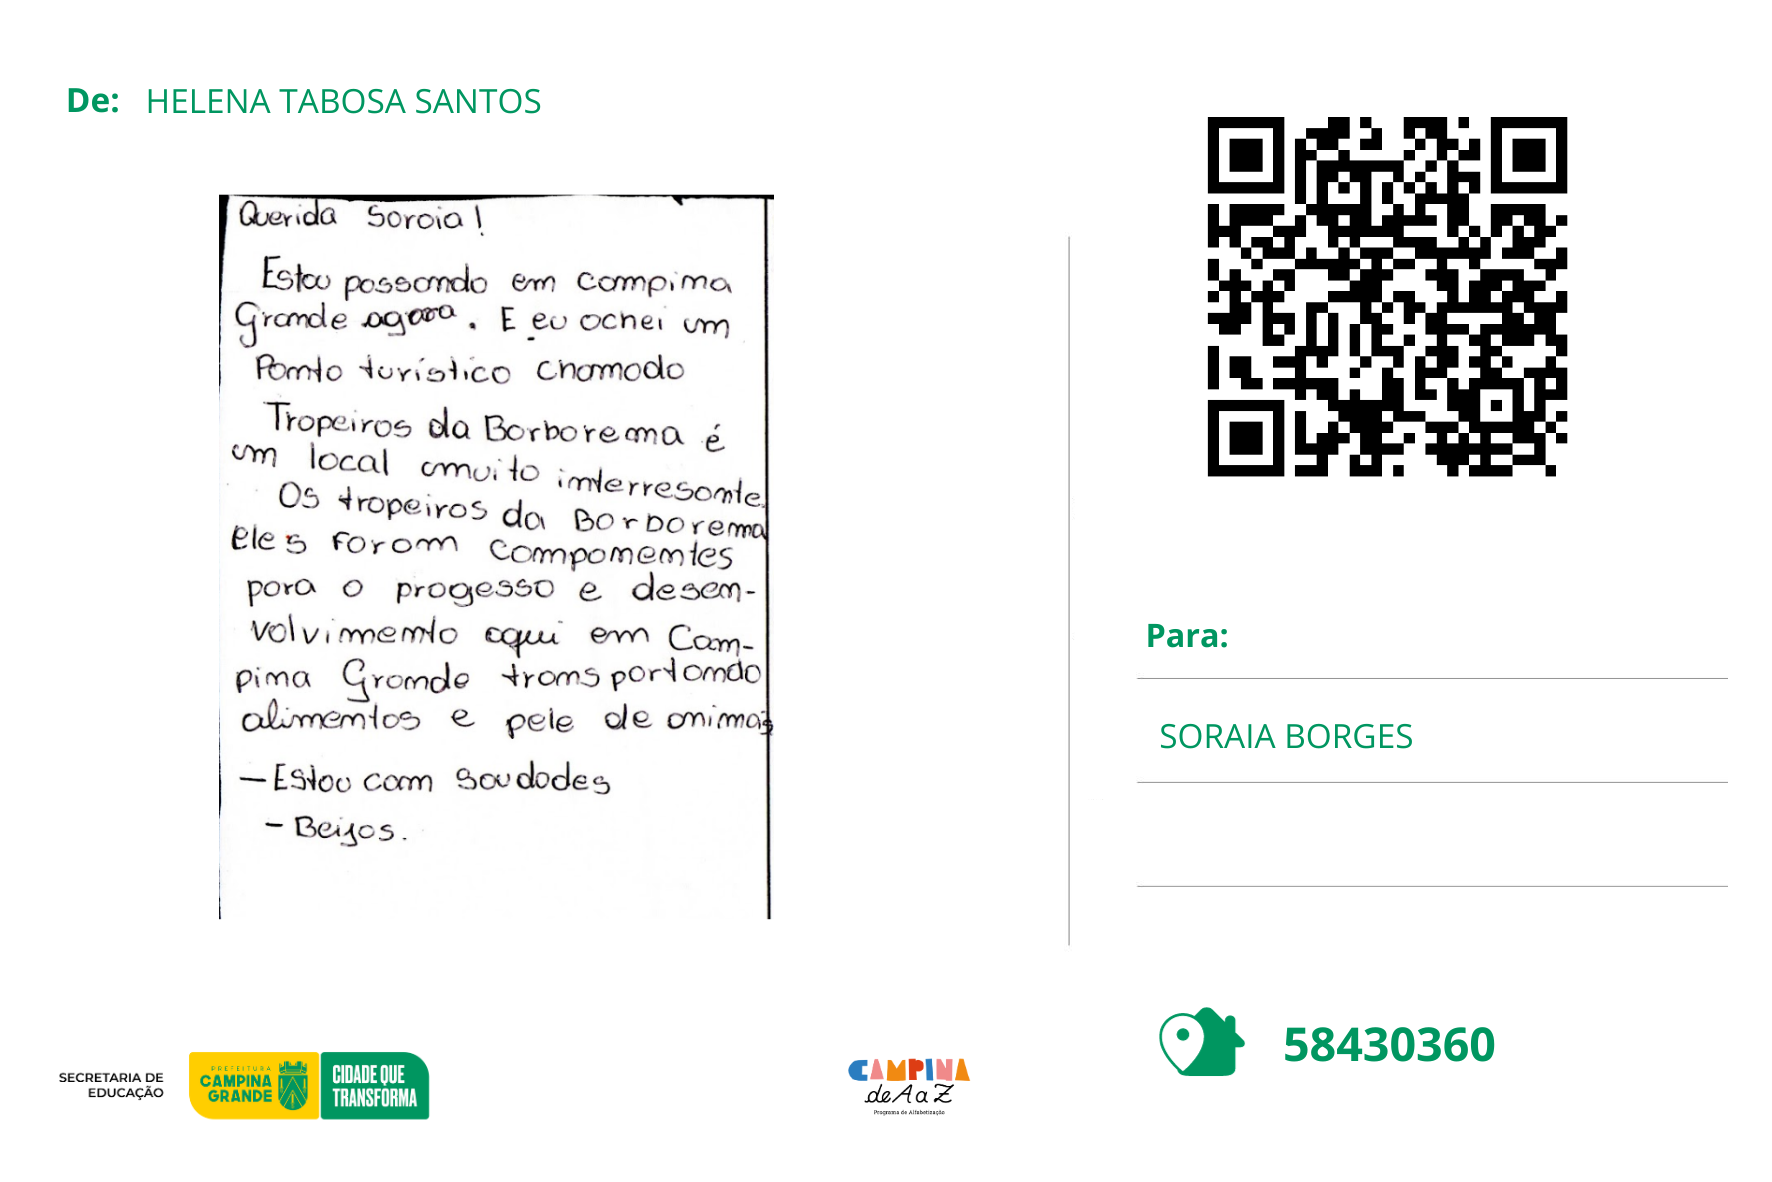 De: HELENA TABOSA SANTOS
Querida Soraia!
Estou passando em campina
Grande agora. E eu achei um
Ponto turístico chamado
Tropeiros da Borborema é
um local muito interresante.
Os tropeiros da Borborema
eles foram componentes
para o progesso e desem-
volvimento aqui em Cam-
pina Grande transportando
alimentos e pele de animais
- Estou com saudades
- Beijos.
Para:
SORAIA BORGES
58430360
SECRETARIA DE
EDUCAÇÃO
PREFEITURA
CAMPINA
GRANDE
CIDADE QUE
TRANSFORMA
CAMPINA
de A a Z
Programa de Alfabetização